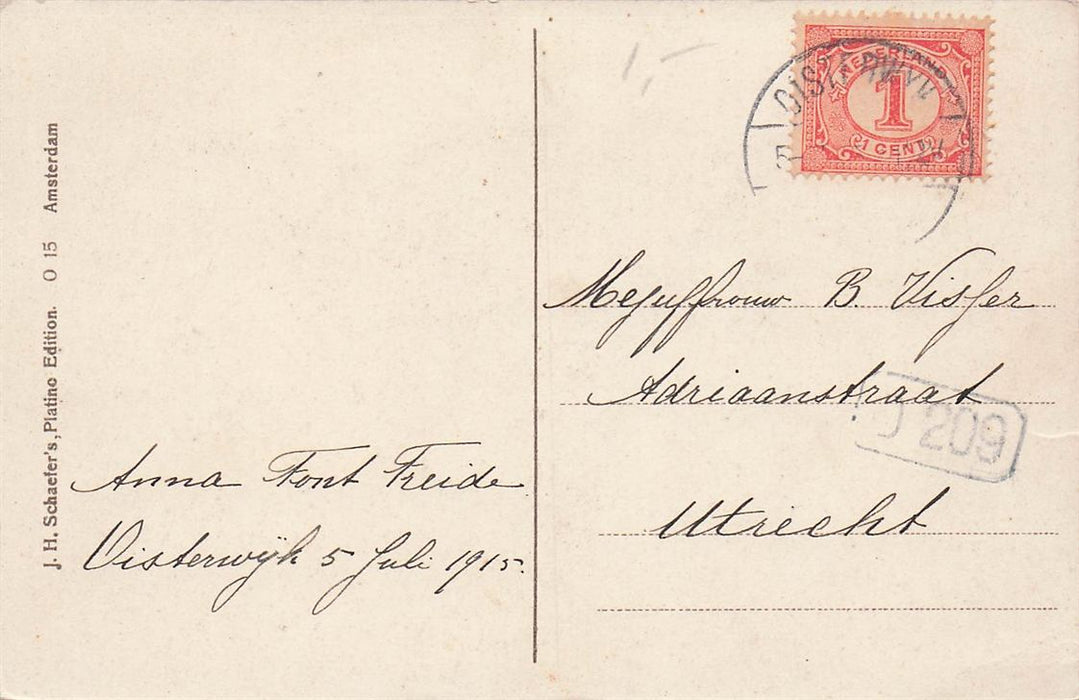 J. H. Schaefer's, Platino Edition. O 15 Amsterdam
1,-
NEDERLAND
1
1 CENT
Mejuffrouw B. Visser
Adriaanstraat
209
Utrecht
Anna Font Freide
Oisterwijk 5 Juli 1915.